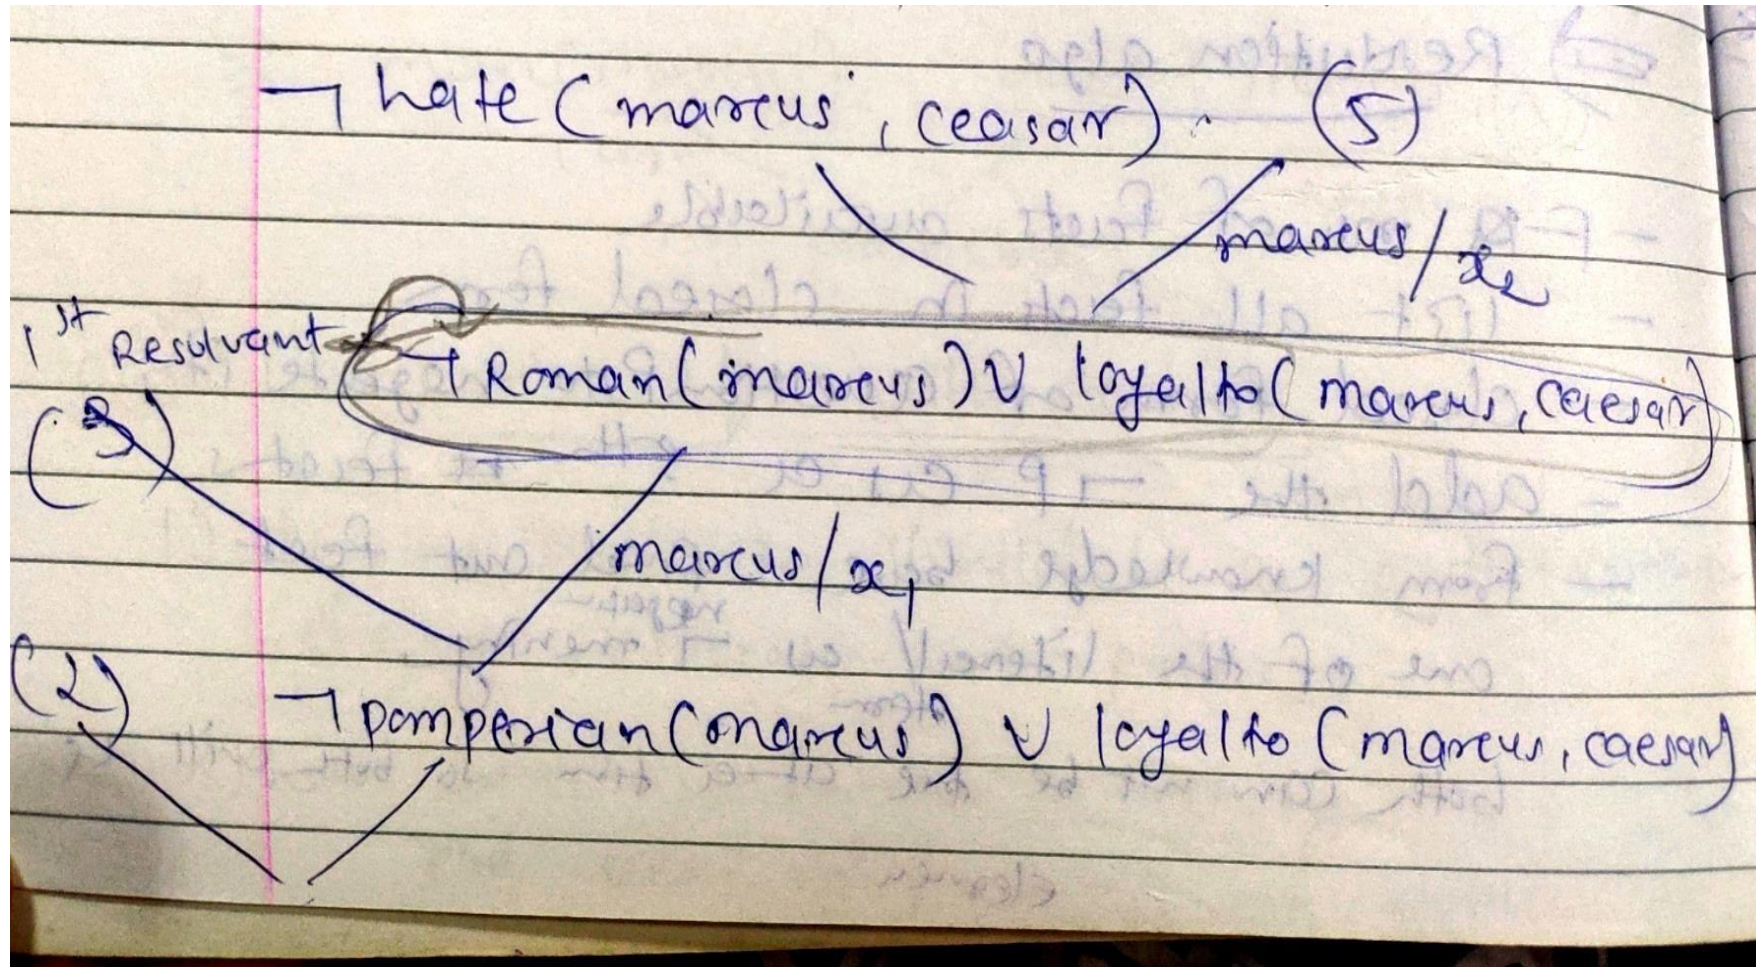 ¬ hate (marcus, ceasar). (5)
marcus/x₂
1st Resolvant
¬ Roman (marcus) V loyalto (marcus, caesar)
(3)
marcus/x₁
(2) ¬ pomperian (marcus) V loyalto (marcus, caesar)